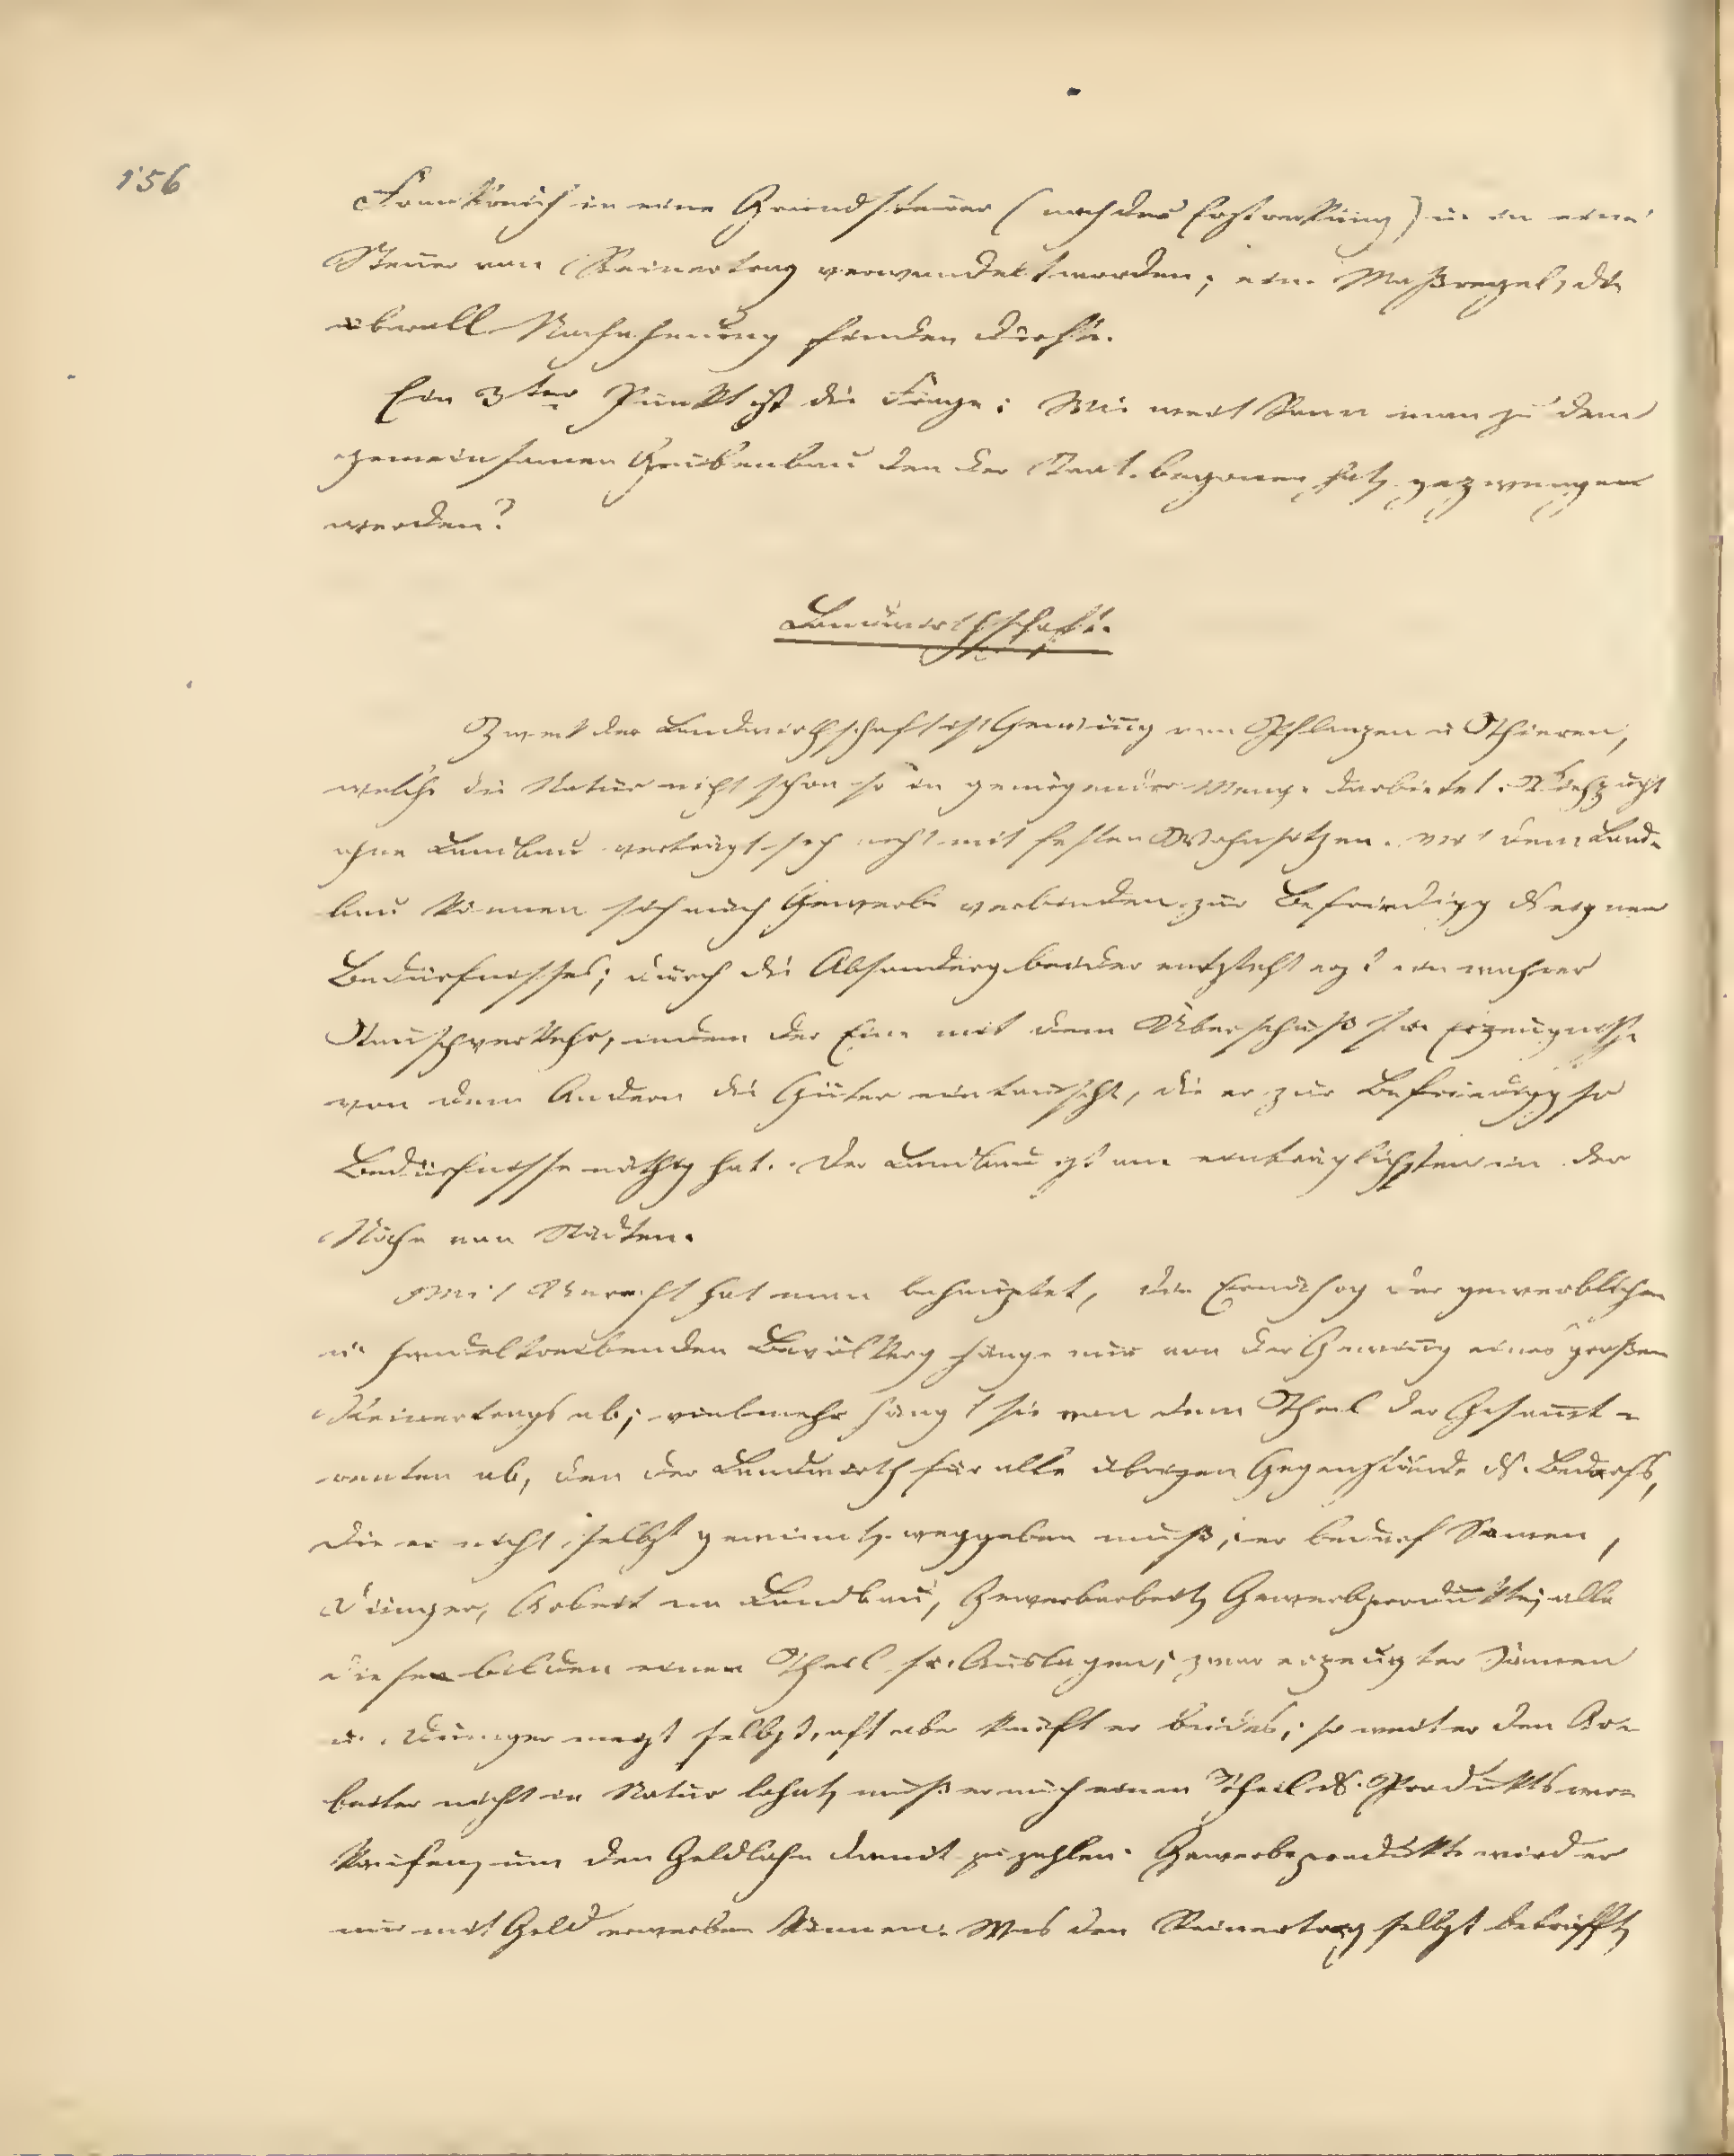 156
Frankreich in eine Grundsteuer (nach der Erstreckung) u. in eine
Steuer vom Reinertrag verwandelt worden; eine Maßregel, die
überall Nachahmung finden dürfte.
Ein 3ter Punkt ist die Frage: Wie weit kann man zu dem
gemeinsamen Grubenbau den der Staat begonnen hat, gezwungen
werden?
Landwirthschaft.
Zweck der Landwirthschaft ist Gewinnung von Pflanzen u Thieren,
welche die Natur nicht schon so in genügender Menge darbietet. Viehzucht
ohne Landbau verträgt sich nicht mit festen Wohnsitzen. Mit dem Land-
bau können sich auch Gewerbe verbinden zur Befriedigg des eignen
Bedürfnisses; durch die Absonderg beider entsteht erst ein wahrer
Tauschverkehr, indem der Eine mit dem Überschuß sr. Erzeugnisse
von dem Andern die Güter eintauscht, die er zur Befriedigg sr
Bedürfnisse nöthig hat. Der Landbau ist am einträglichsten in der
Nähe von Städten.
Mit Unrecht hat man behauptet, die der gewerblichen
u. handeltreibenden Bevölkerg hänge nur von der Gewinng eines großen
Reinertrags ab; vielmehr hängt sie von dem Theil der Gesammt-
renten ab, den der Landwirth für alle übrigen Gegenstände ds. Bedarfs,
die er nicht selbst gewinnt, weggeben muß; er bedarf Samen,
Dünger, Arbeit im Landbau, Gewerbarbeit, Gewerbprodukte; alle
diese bilden einen Theil sr. Auslagen; zwar erzeugt er Samen
u. Dünger meist selbst, oft aber kauft er beides; so weit er den Ar-
beiter nicht in Natur lohnt, muß er auch einen Theil ds. Produkts ver-
kaufen, um den Geldlohn damit zu zahlen. Gewerbsprodukte wird er
nur mit Geld erwerben können. Was den Reinertrag selbst betrifft,